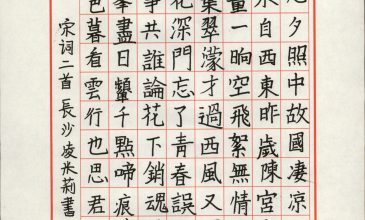 夕照中故國凄涼
水自西東昨歲陳宮
量一晌空飛絮無情
翠濛才過西風又
花深門忘了青春誤
事共誰論花下銷魂
峯盡日顰千點啼痕
色暮看雲行也思君
宋词二首長沙凌米荊書